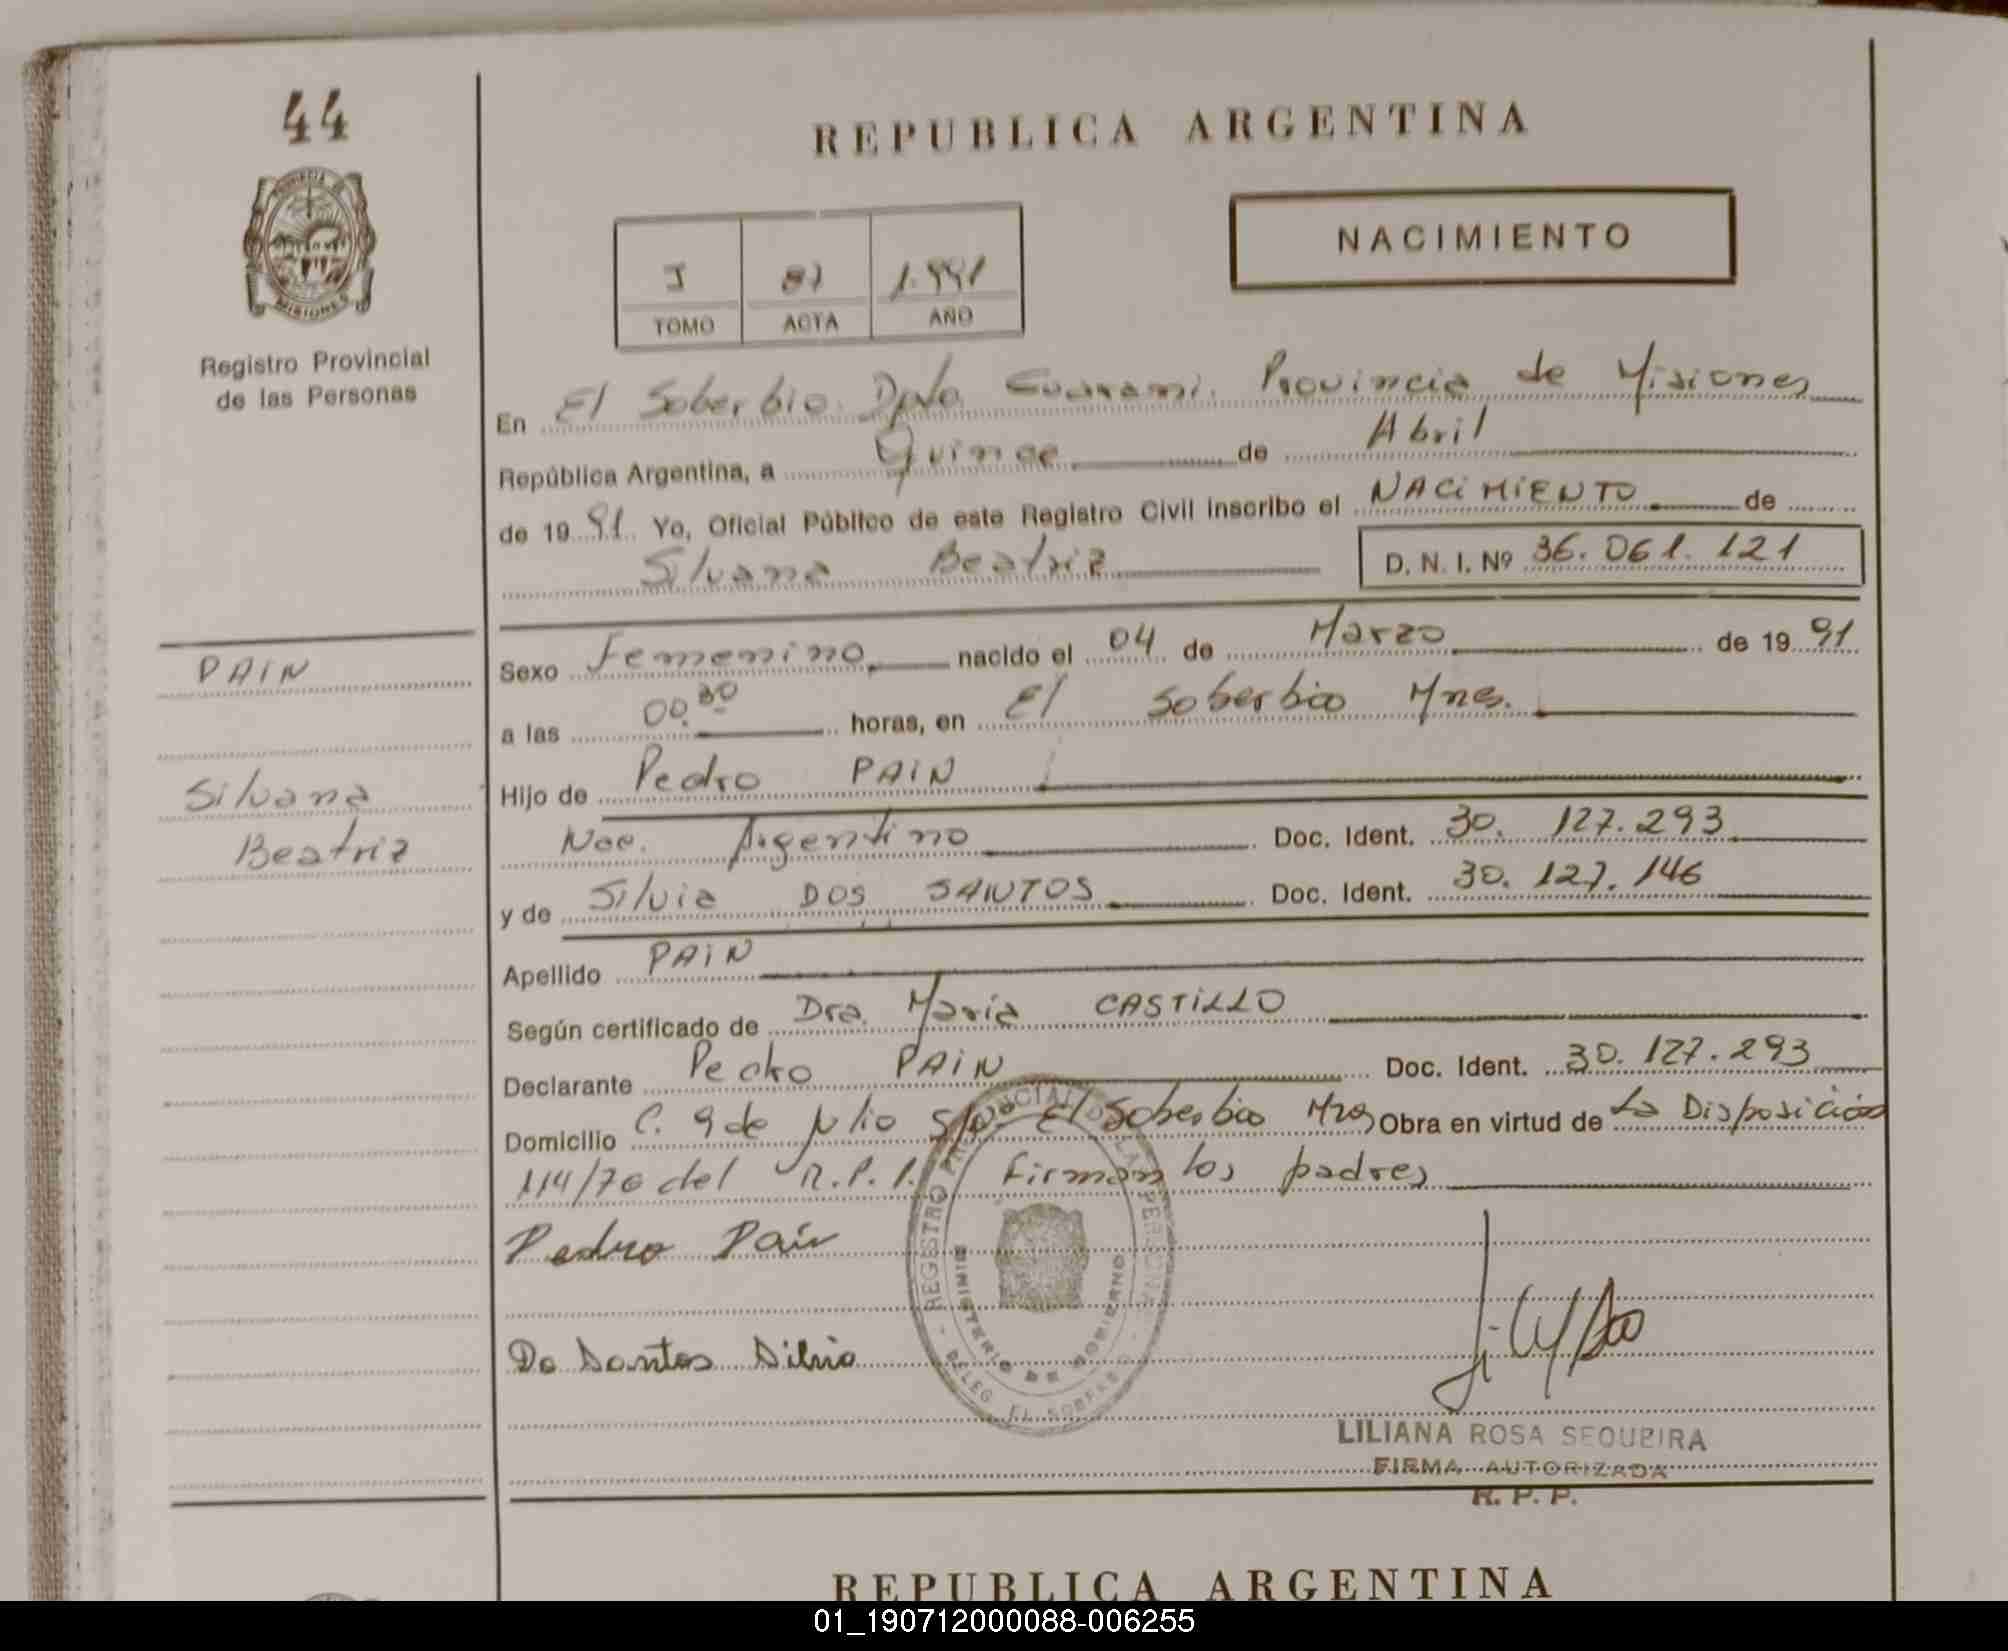 44
PROVINCIA DE
MISIONES
Registro Provincial
de las Personas
REPUBLICA ARGENTINA
NACIMIENTO
I 87 1.991
TOMO ACTA AÑO
En El Soberbio. Dpto. Guarani. Provincia de Misiones
República Argentina, a Quince de Abril
de 1991 Yo, Oficial Público de este Registro Civil inscribo el NACIMIENTO de
Silvana Beatriz D. N. I. Nº 36.061.121
PAIN
Silvana
Beatriz
Sexo Femenino nacido el 04 de Marzo de 1991
a las 00.30 horas, en El Soberbio Mnes.
Hijo de Pedro PAIN
Nac. Argentino Doc. Ident. 30.127.293
y de Silvia DOS SANTOS Doc. Ident. 30.127.146
Apellido PAIN
Según certificado de Dra. Maria CASTILLO
Declarante Pedro PAIN Doc. Ident. 30.127.293
Domicilio C. 9 de Julio S/Nº El Soberbio Mnes Obra en virtud de La Disposición
114/76 del R.P.P. Firman los padres
Pedro Pain
Do Santos Silvia
REGISTRO PROVINCIAL DE LAS PERSONAS
MINISTERIO DE GOBIERNO
DELEG. EL SOBERBIO
LILIANA ROSA SEQUEIRA
FIRMA AUTORIZADA
R. P. P.
REPUBLICA ARGENTINA
01_190712000088-006255